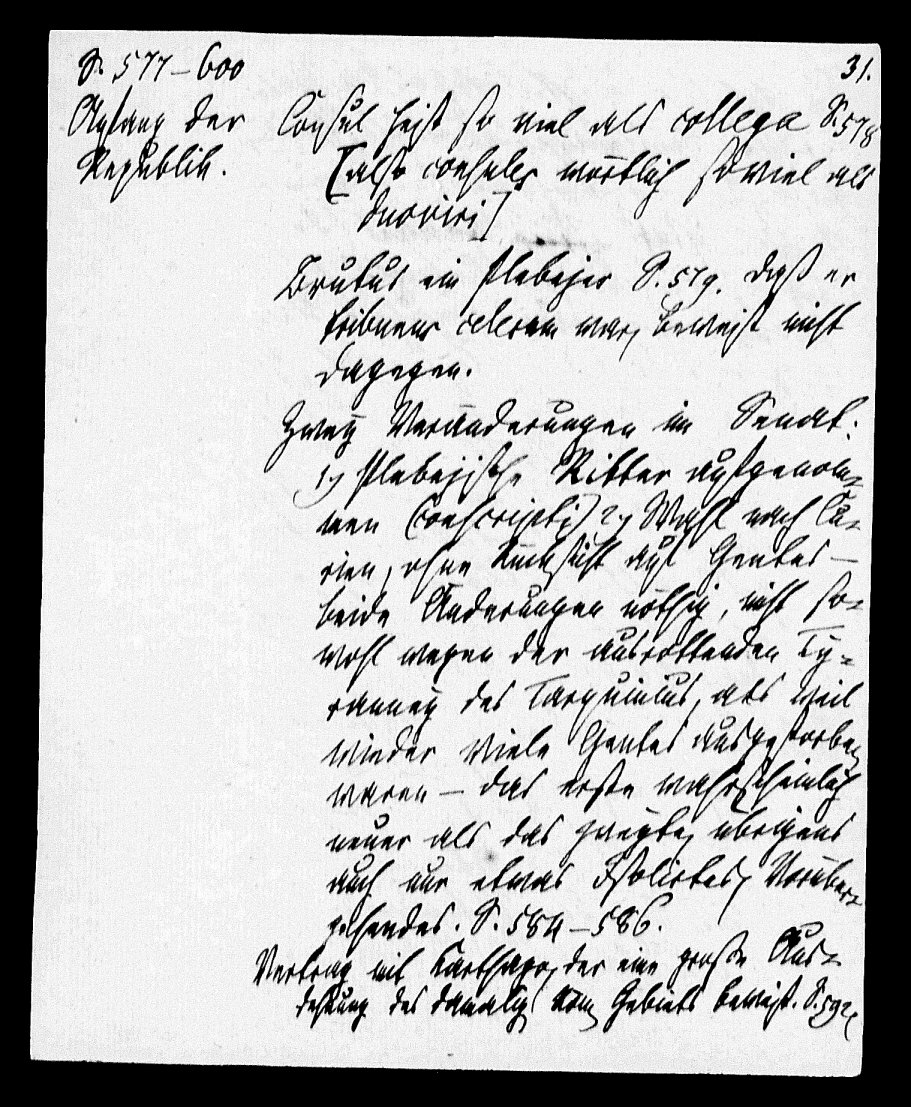 S. 577–600
31.
Anfang der
Republik.
Consul heißt so viel als collega S. 578
[also consules wörtlich soviel als
duoviri]
Brutus ein Plebejer S. 579. daß er
tribunus celerum war, beweist nicht
dagegen.
Zwey Veränderungen im Senat:
1) Plebejische Ritter aufgenom-
men (conscripti) 2) Wahl nach Cu-
rien, ohne Rücksicht auf Gentes –
beide Änderungen nöthig, nicht so-
wohl wegen der ausrottenden Ty-
ranney des Tarquinius, als weil
wieder viele Gentes ausgestorben
waren – das erste wahrscheinlich
neuer als das zweyte, übrigens
auch nur etwas Isolirtes, Vorüber-
gehendes. S. 584–586.
Vertrag mit Karthago, der eine große Aus-
dehnung des damalig Röm Gebiets beweist. S. 592